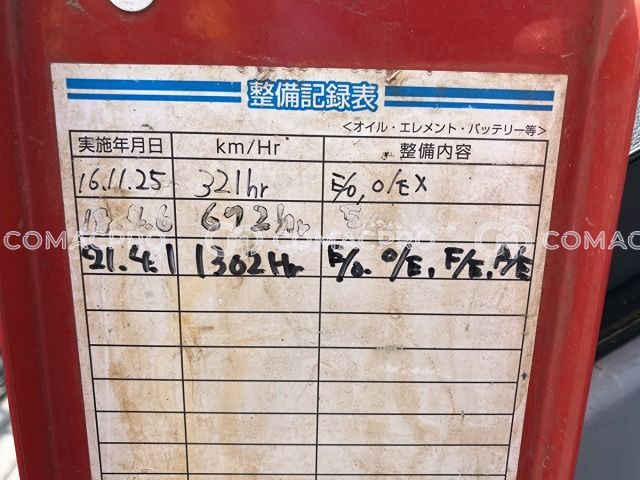 整備記録表
<オイル・エレメント・バッテリー等>
実施年月日 km/Hr 整備内容
16.11.25 321hr E/O, O/EX
672hr E/
21.4.1 1302Hr E/O. O/E, F/E, A/E
COMACPRO COMACPRO COMAC